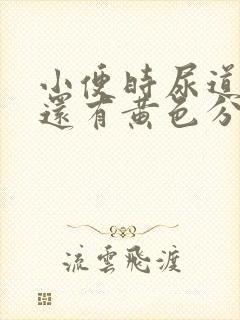 小便時尿道
還有黃色分
流雲飛渡